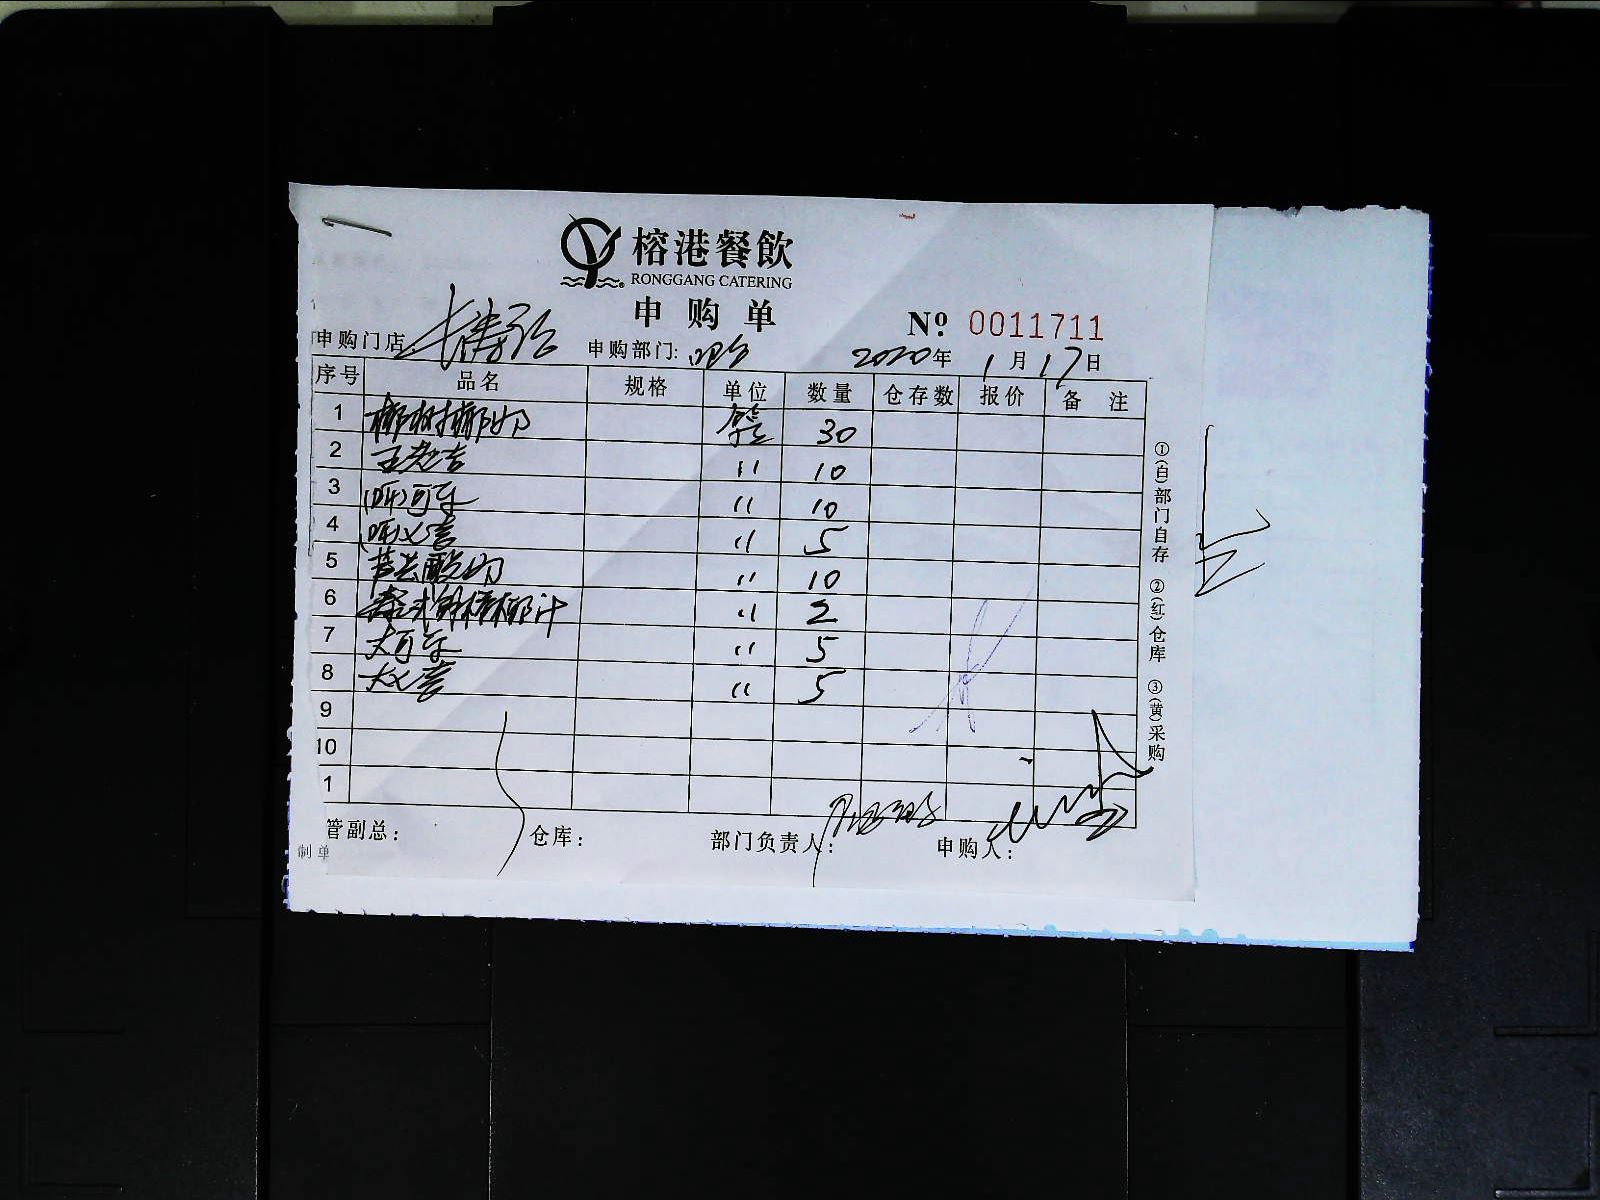 榕港餐飲
RONGGANG CATERING
申购单
№ 0011711
申购门店 申购部门: 吧台 2020年1月17日
序号 品名 规格 单位 数量 仓存数 报价 备注
1 椰树椰奶 30
2 王老吉 〃 10
3 (听)可乐 〃 10
4 (听)雪 〃 5
5 芦荟酸奶 〃 10
6 椰汁 〃 2
7 大可乐 〃 5
8 大雪 〃 5
9
10
1
管副总: 仓库: 部门负责人: 申购人:
制单
①(白)部门自存 ②(红)仓库 ③(黄)采购